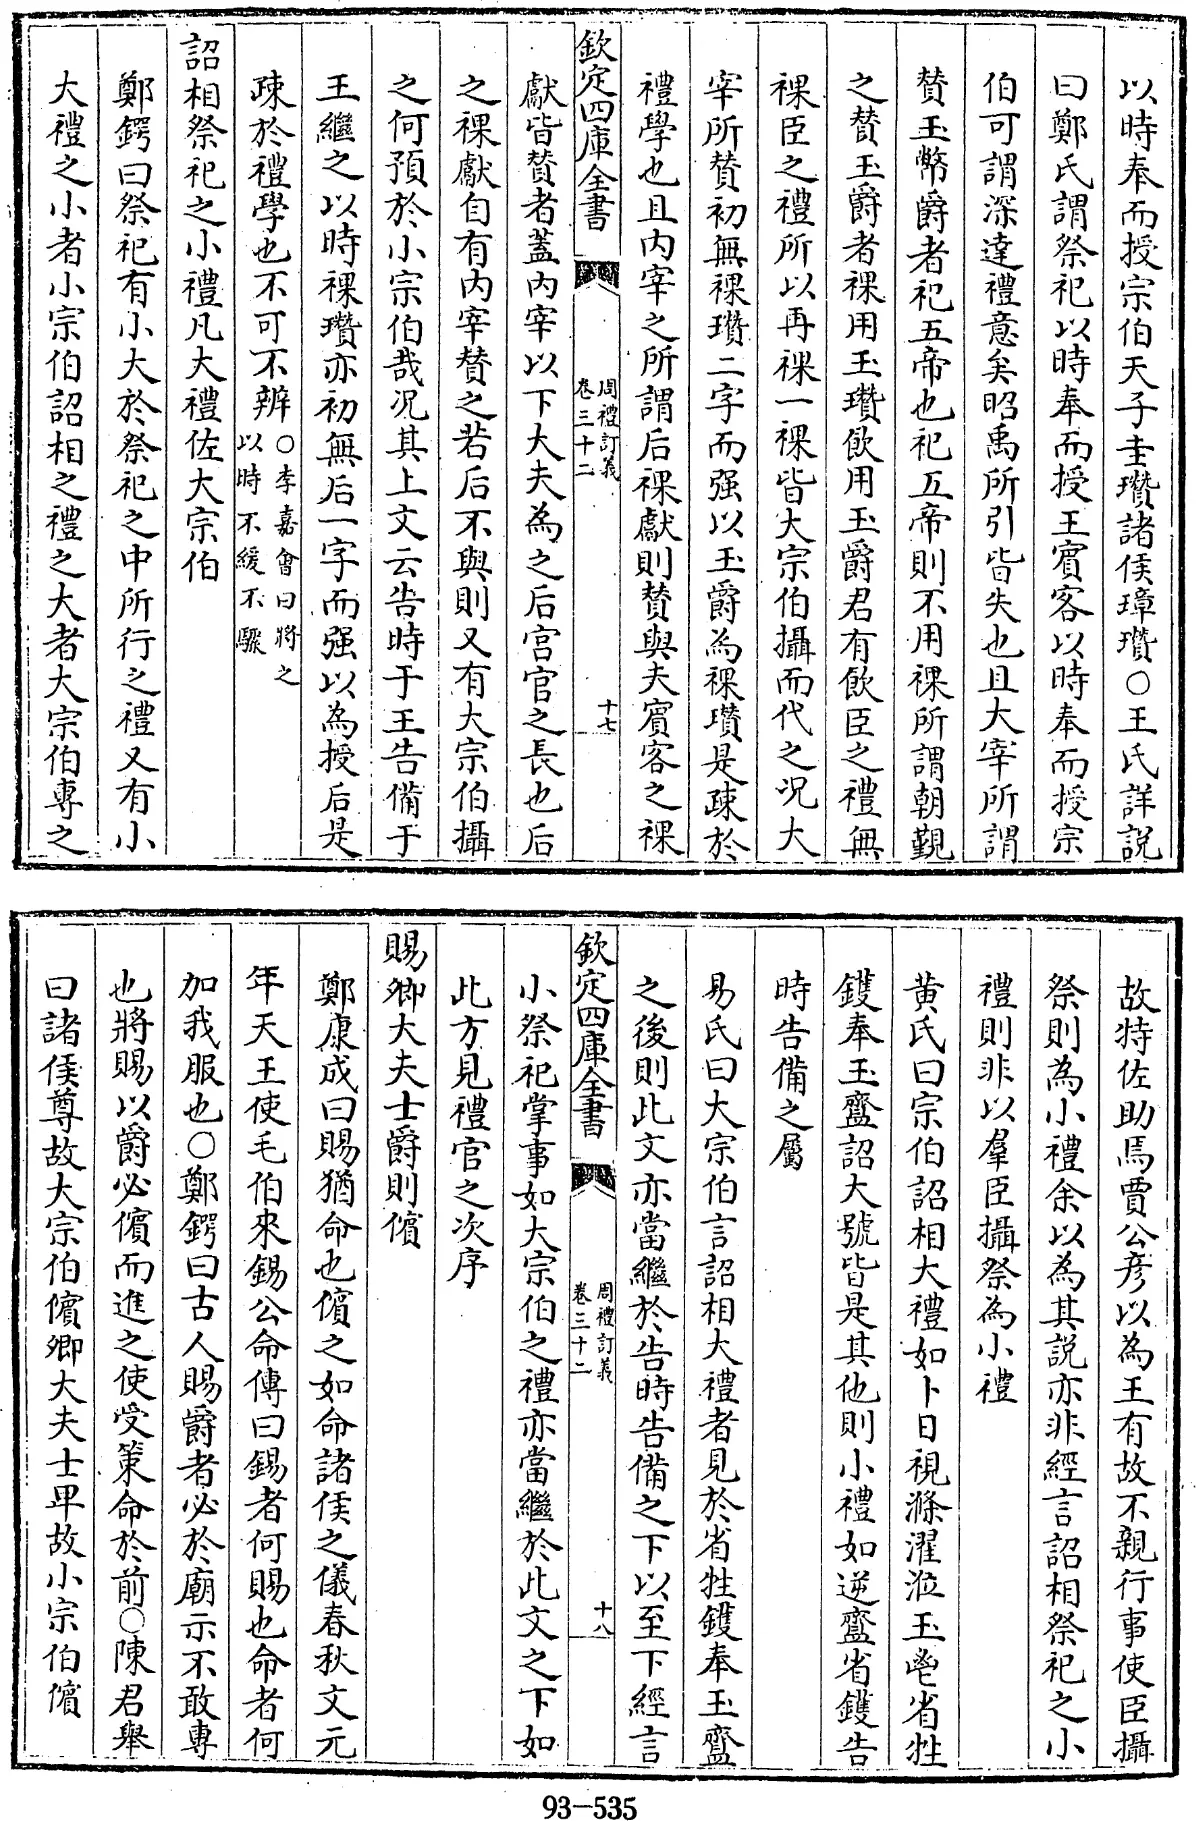 以時奉而授宗伯天子圭瓚諸侯璋瓚〇王氏詳說
曰鄭氏謂祭祀以時奉而授王賓客以時奉而授宗
伯可謂深達禮意矣昭禹所引皆失也且大宰所謂
贊玉幣爵者祀五帝也祀五帝則不用祼所謂朝覲
之贊玉爵者祼用玉瓚飲用玉爵君有飲臣之禮無
祼臣之禮所以再祼一祼皆大宗伯攝而代之况大
宰所贊初無祼瓚二字而强以玉爵為祼瓚是疎於
禮學也且内宰之所謂后祼獻則贊與夫賓客之祼
欽定四庫全書
周禮訂義
卷三十二
十七
獻皆贊者蓋内宰以下大夫為之后宫官之長也后
之祼獻自有内宰贊之若后不與則又有大宗伯攝
之何預於小宗伯哉况其上文云告時于王告備于
王繼之以時祼瓚亦初無后一字而强以為授后是
疎於禮學也不可不辨〇李嘉會曰將之
以時不緩不驟
詔相祭祀之小禮凡大禮佐大宗伯
鄭鍔曰祭祀有小大於祭祀之中所行之禮又有小
大禮之小者小宗伯詔相之禮之大者大宗伯專之
故特佐助焉賈公彦以為王有故不親行事使臣攝
祭則為小禮余以為其說亦非經言詔相祭祀之小
禮則非以羣臣攝祭為小禮
黄氏曰宗伯詔相大禮如卜日視滌濯涖玉鬯省牲
鑊奉玉齍詔大號皆是其他則小禮如逆齍省鑊告
時告備之屬
易氏曰大宗伯言詔相大禮者見於省牲鑊奉玉齍
之後則此文亦當繼於告時告備之下以至下經言
欽定四庫全書
周禮訂義
卷三十二
十八
小祭祀掌事如大宗伯之禮亦當繼於此文之下如
此方見禮官之次序
賜卿大夫士爵則儐
鄭康成曰賜猶命也儐之如命諸侯之儀春秋文元
年天王使毛伯來錫公命傳曰錫者何賜也命者何
加我服也〇鄭鍔曰古人賜爵者必於廟示不敢專
也將賜以爵必儐而進之使受策命於前〇陳君舉
曰諸侯尊故大宗伯儐卿大夫士卑故小宗伯儐
93-535